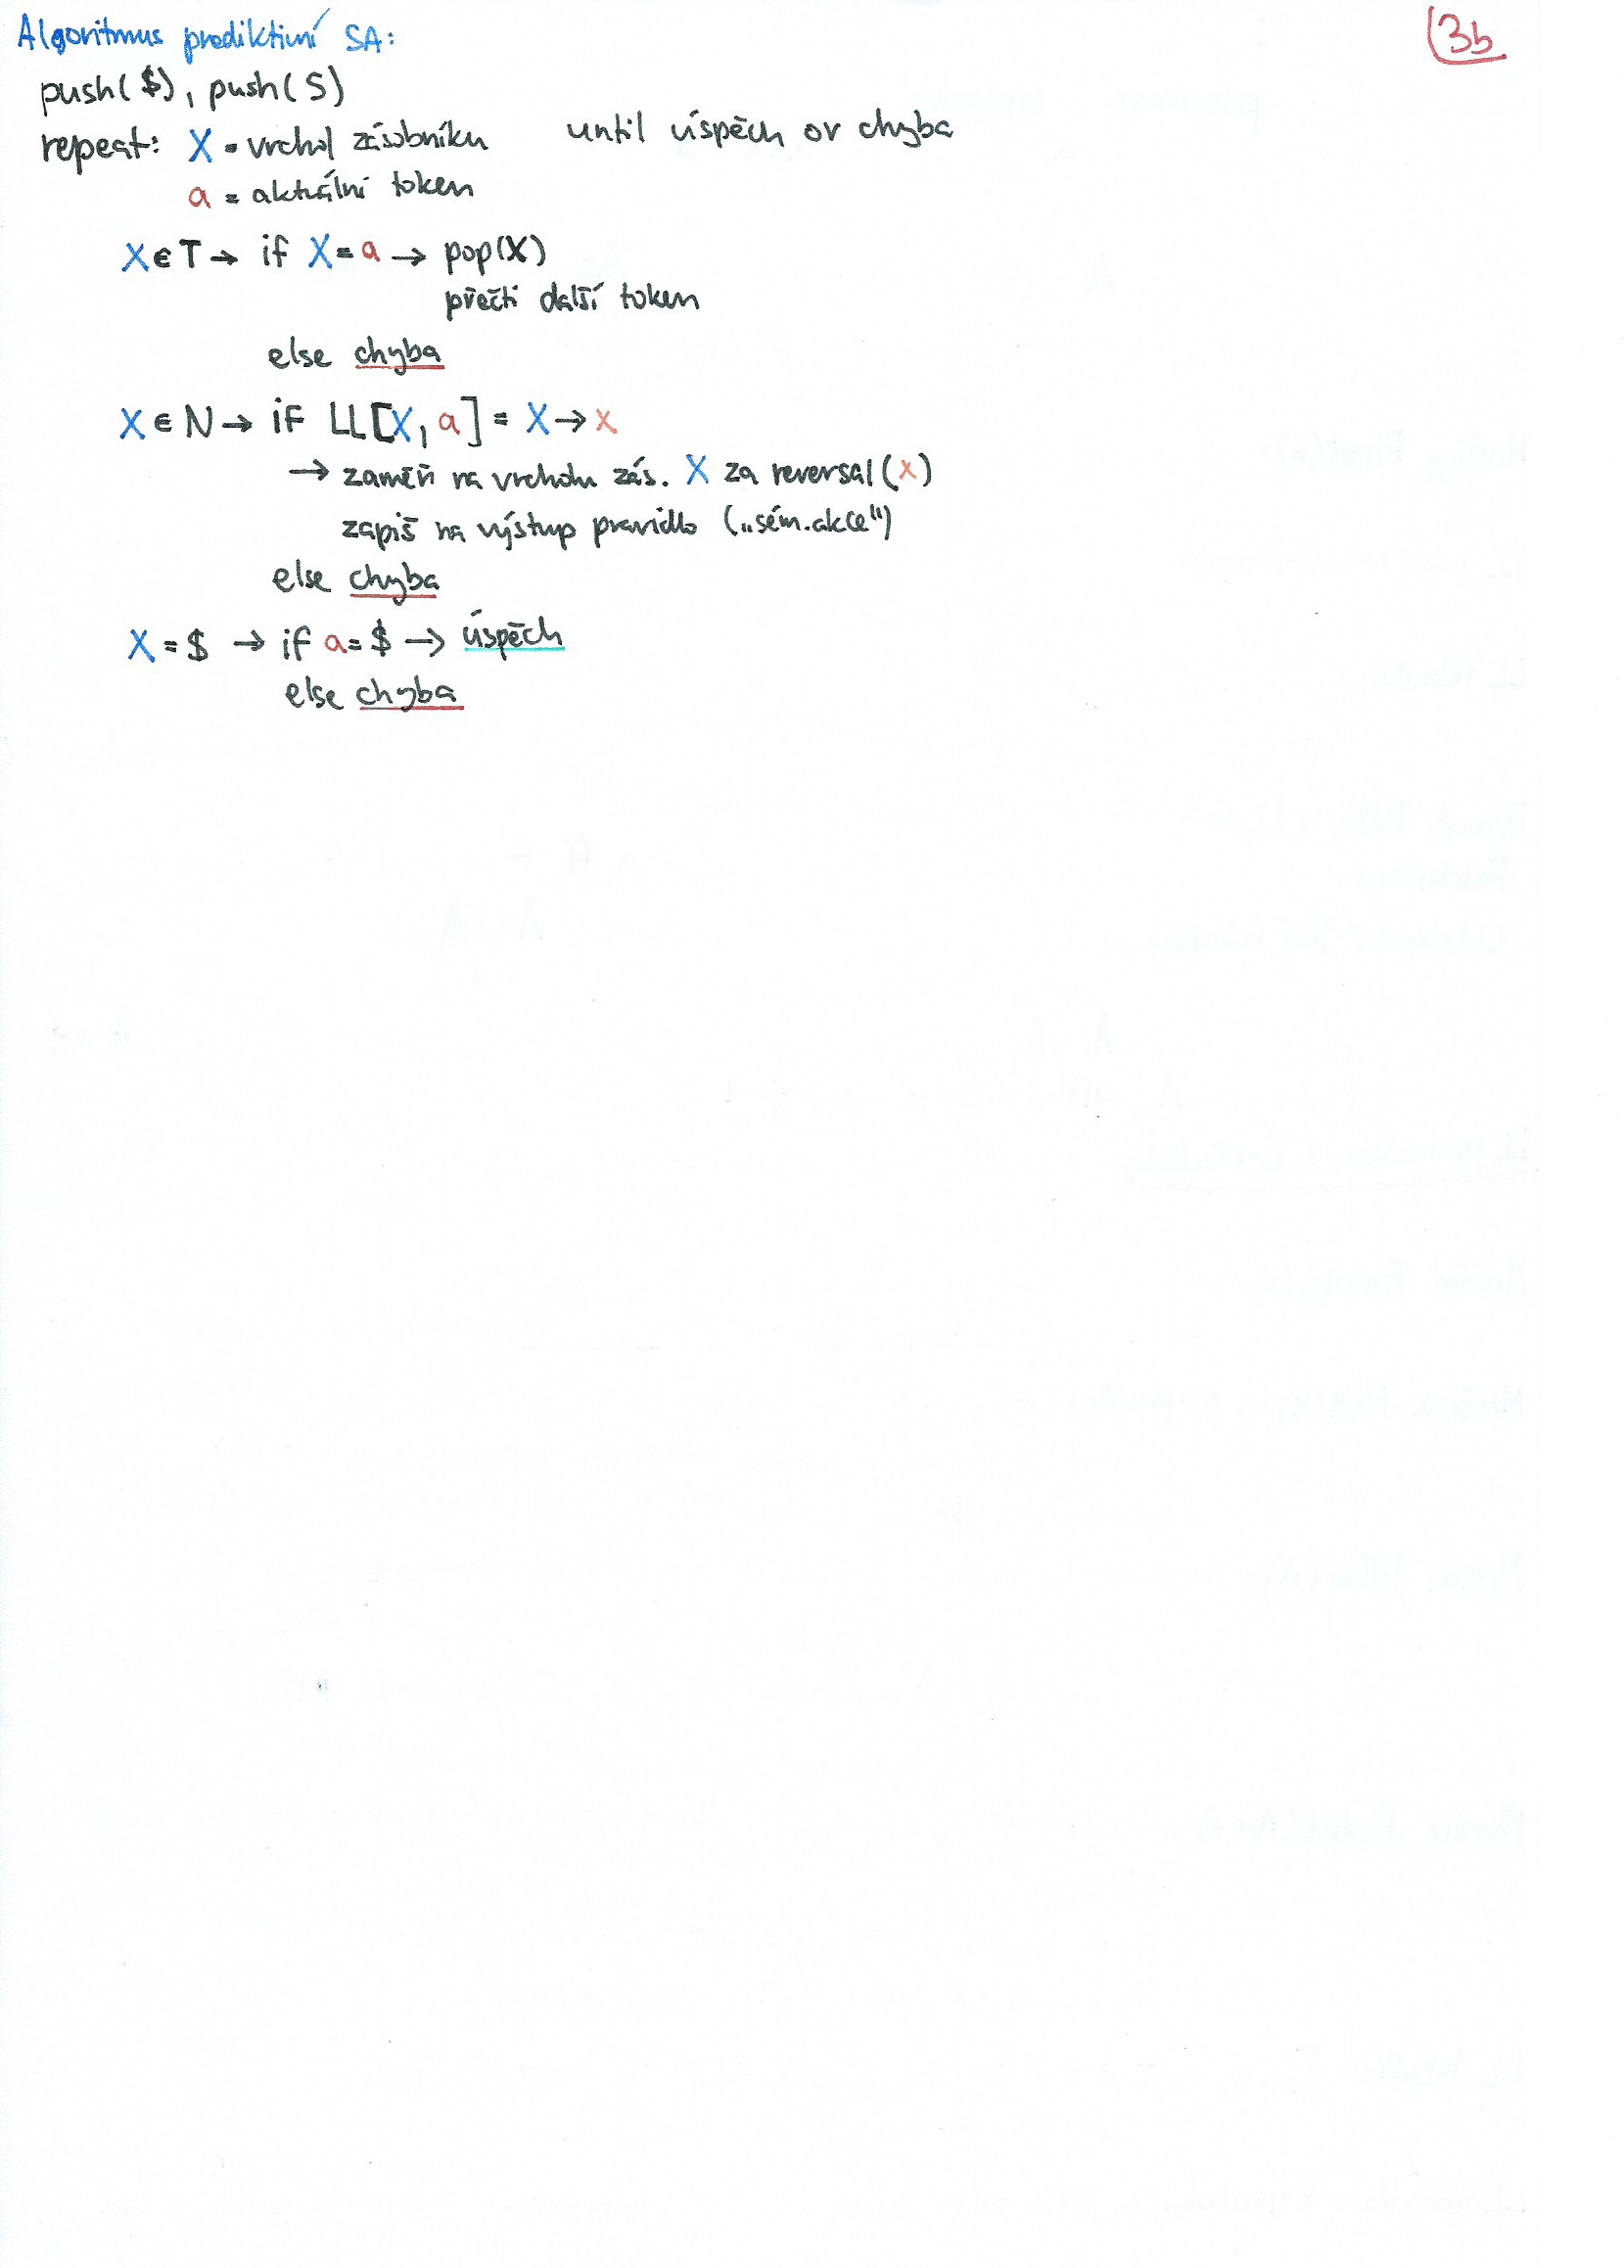 Algoritmus prediktivní SA:
3b
push($), push(S)
repeat: X = vrchol zásobníku until úspěch or chyba
a = aktuální token
X ∈ T → if X = a → pop(X)
přečti další token
else chyba
X ∈ N → if LL[X, a] = X → x
→ zaměň na vrcholu zás. X za reversal(x)
zapiš na výstup pravidlo („sém.akce")
else chyba
X = $ → if a = $ → úspěch
else chyba